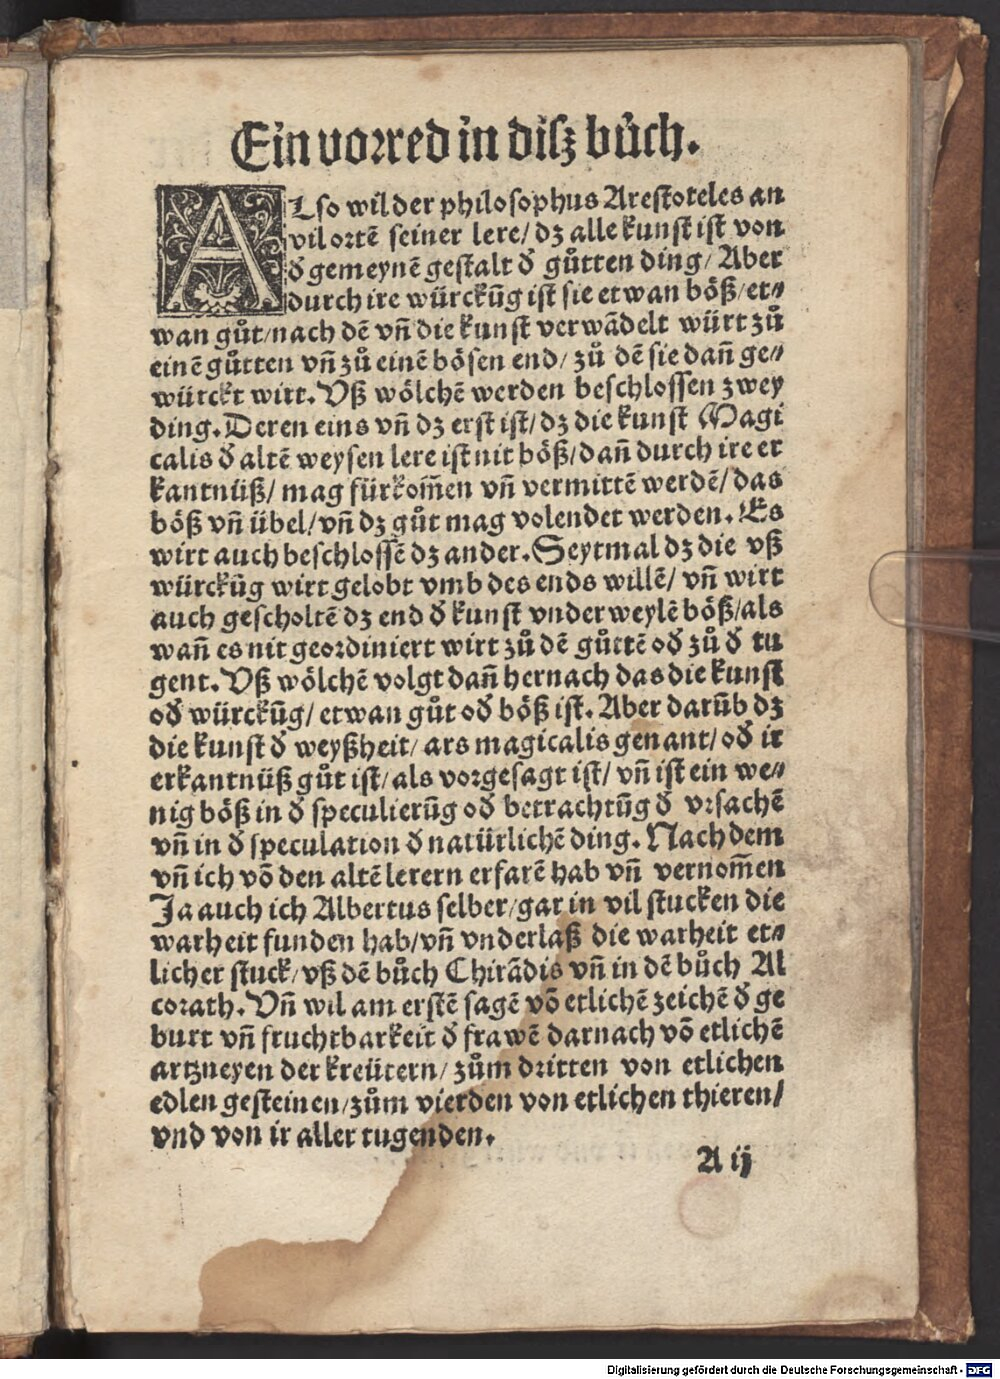 Ein vorred in diſz bůch.
ALſo wil der philoſophus Areſtoteles an
vil ortē ſeiner lere/ dz alle kunſt iſt von
đ gemeynē geſtalt đ gůtten ding/ Aber
durch ire würckūg iſt ſie etwan böß/et⸗
wan gůt/nach dē vn̄ die kunſt verwādelt würt zů
einē gůtten vn̄ zů einē böſen end/ zů dē ſie dan̄ ge⸗
würckt wirt. Vß wölchē werden beſchloſſen zwey
ding. Deren eins vn̄ dz erſt iſt/ dz die kunſt Magi
calis đ altē weyſen lere iſt nit böß/dan̄ durch ire er
kantnüß/ mag fürkom̄en vn̄ vermittē werdē/ das
böß vn̄ übel/vn̄ dz gůt mag volendet werden. Es
wirt auch beſchloſſē dz ander. Seytmal dz die vß
würckūg wirt gelobt vmb des ends willē/ vn̄ wirt
auch geſcholtē dz end đ kunſt vnderweylē böß/als
wan̄ es nit geordiniert wirt zů dē gůttē ođ zů đ tu
gent. Vß wölchē volgt dan̄ hernach das die kunſt
ođ würckūg/ etwan gůt ođ böß iſt. Aber darūb dz
die kunſt đ weyßheit/ ars magicalis genant/ ođ ir
erkantnüß gůt iſt/als vorgeſagt iſt/ vn̄ iſt ein we⸗
nig böß in đ ſpeculierūg ođ betrachtūg đ vrſachē
vn̄ in đ ſpeculation đ natürlichē ding. Nachdem
vn̄ ich vō den altē lerern erfarē hab vn̄ vernom̄en
Ja auch ich Albertus ſelber/gar in vil ſtucken die
warheit funden hab/vn̄ vnderlaß die warheit et⸗
licher ſtuck/ vß dē bůch Chirādis vn̄ in dē bůch Al
corath. Vn̄ wil am erſtē ſagē vō etlichē zeichē đ ge
burt vn̄ fruchtbarkeit đ frawē darnach vō etlichē
artzneyen der kreütern/ zům dritten von etlichen
edlen geſteinen/zům vierden von etlichen thieren/
vnd von ir aller tugenden.
A ij
Digitalisierung gefördert durch die Deutsche Forschungsgemeinschaft - DFG